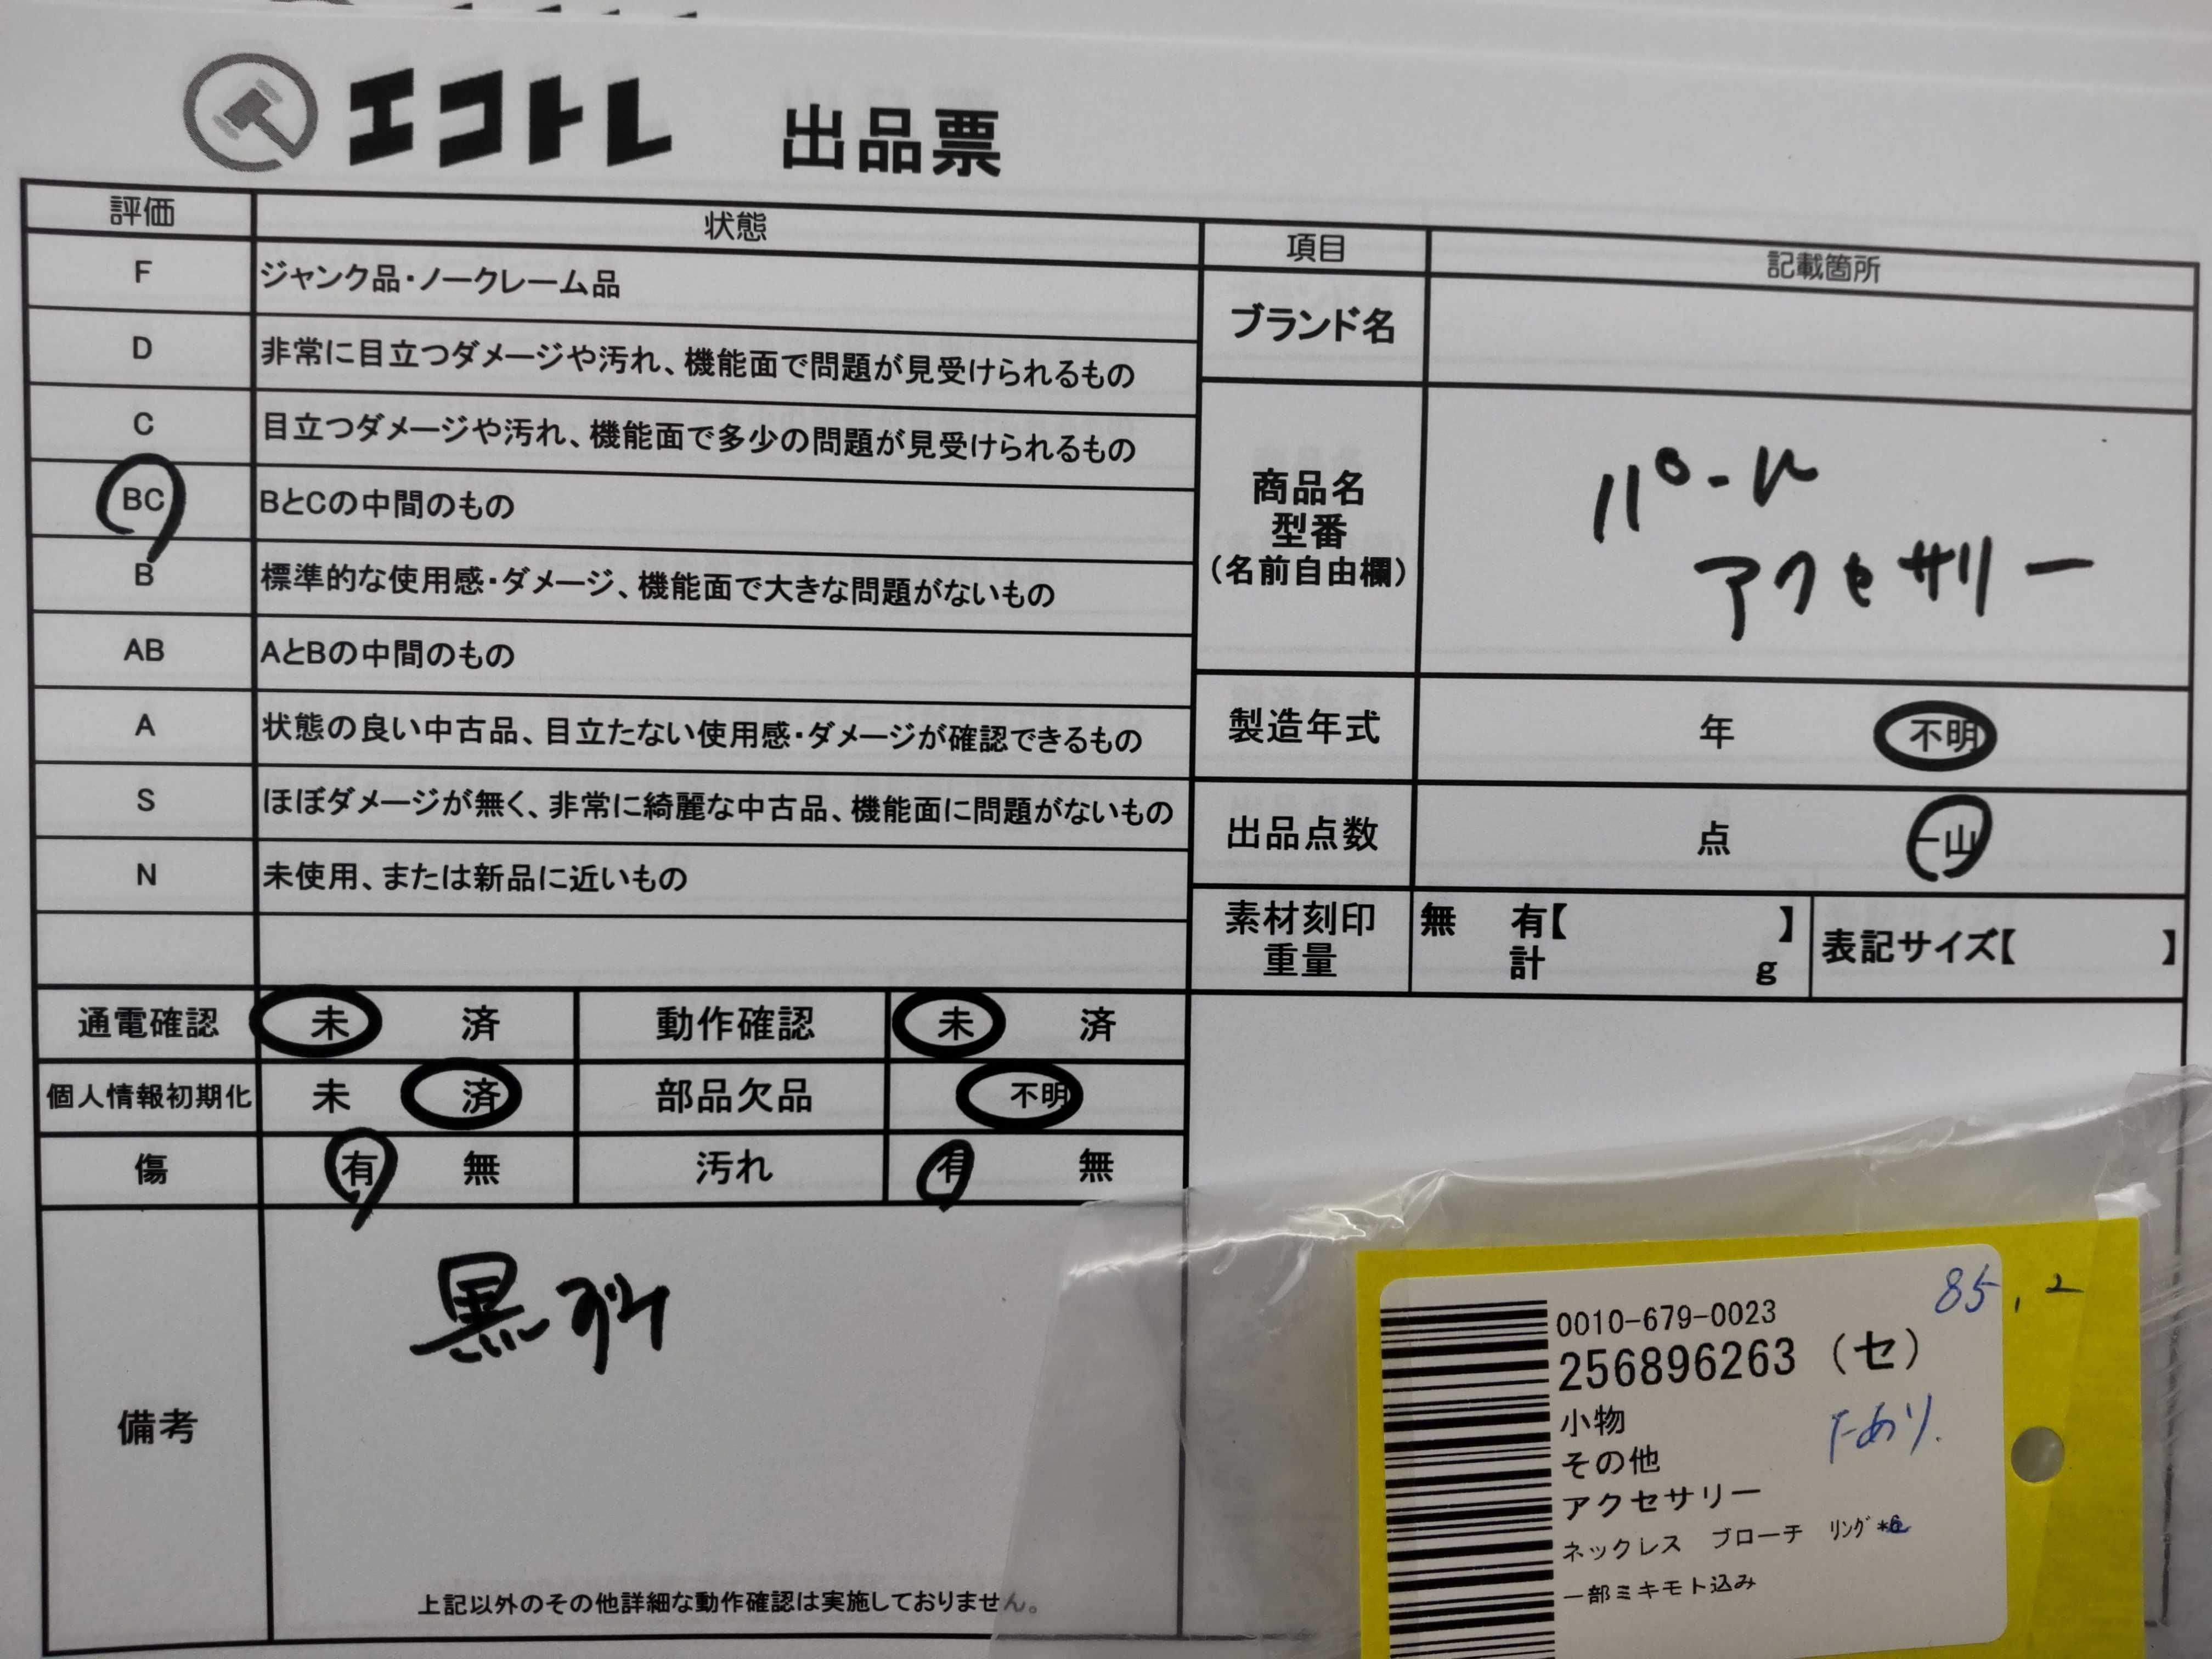 エコトレ 出品票
評価 状態
F ジャンク品・ノークレーム品
D 非常に目立つダメージや汚れ、機能面で問題が見受けられるもの
C 目立つダメージや汚れ、機能面で多少の問題が見受けられるもの
BC BとCの中間のもの
B 標準的な使用感・ダメージ、機能面で大きな問題がないもの
AB AとBの中間のもの
A 状態の良い中古品、目立たない使用感・ダメージが確認できるもの
S ほぼダメージが無く、非常に綺麗な中古品、機能面に問題がないもの
N 未使用、または新品に近いもの
通電確認 未 済 動作確認 未 済
個人情報初期化 未 済 部品欠品 不明
傷 有 無 汚れ 有 無
備考
黒ずみ
上記以外のその他詳細な動作確認は実施しておりません。
項目 記載箇所
ブランド名
商品名
型番
(名前自由欄)
パール
アクセサリー
製造年式 年 不明
出品点数 点 一山
素材刻印 無 有【 】
重量 計 g
表記サイズ【 】
85.2
0010-679-0023
256896263 (セ)
小物
その他
アクセサリー
ネックレス ブローチ リング*
一部ミキモト込み